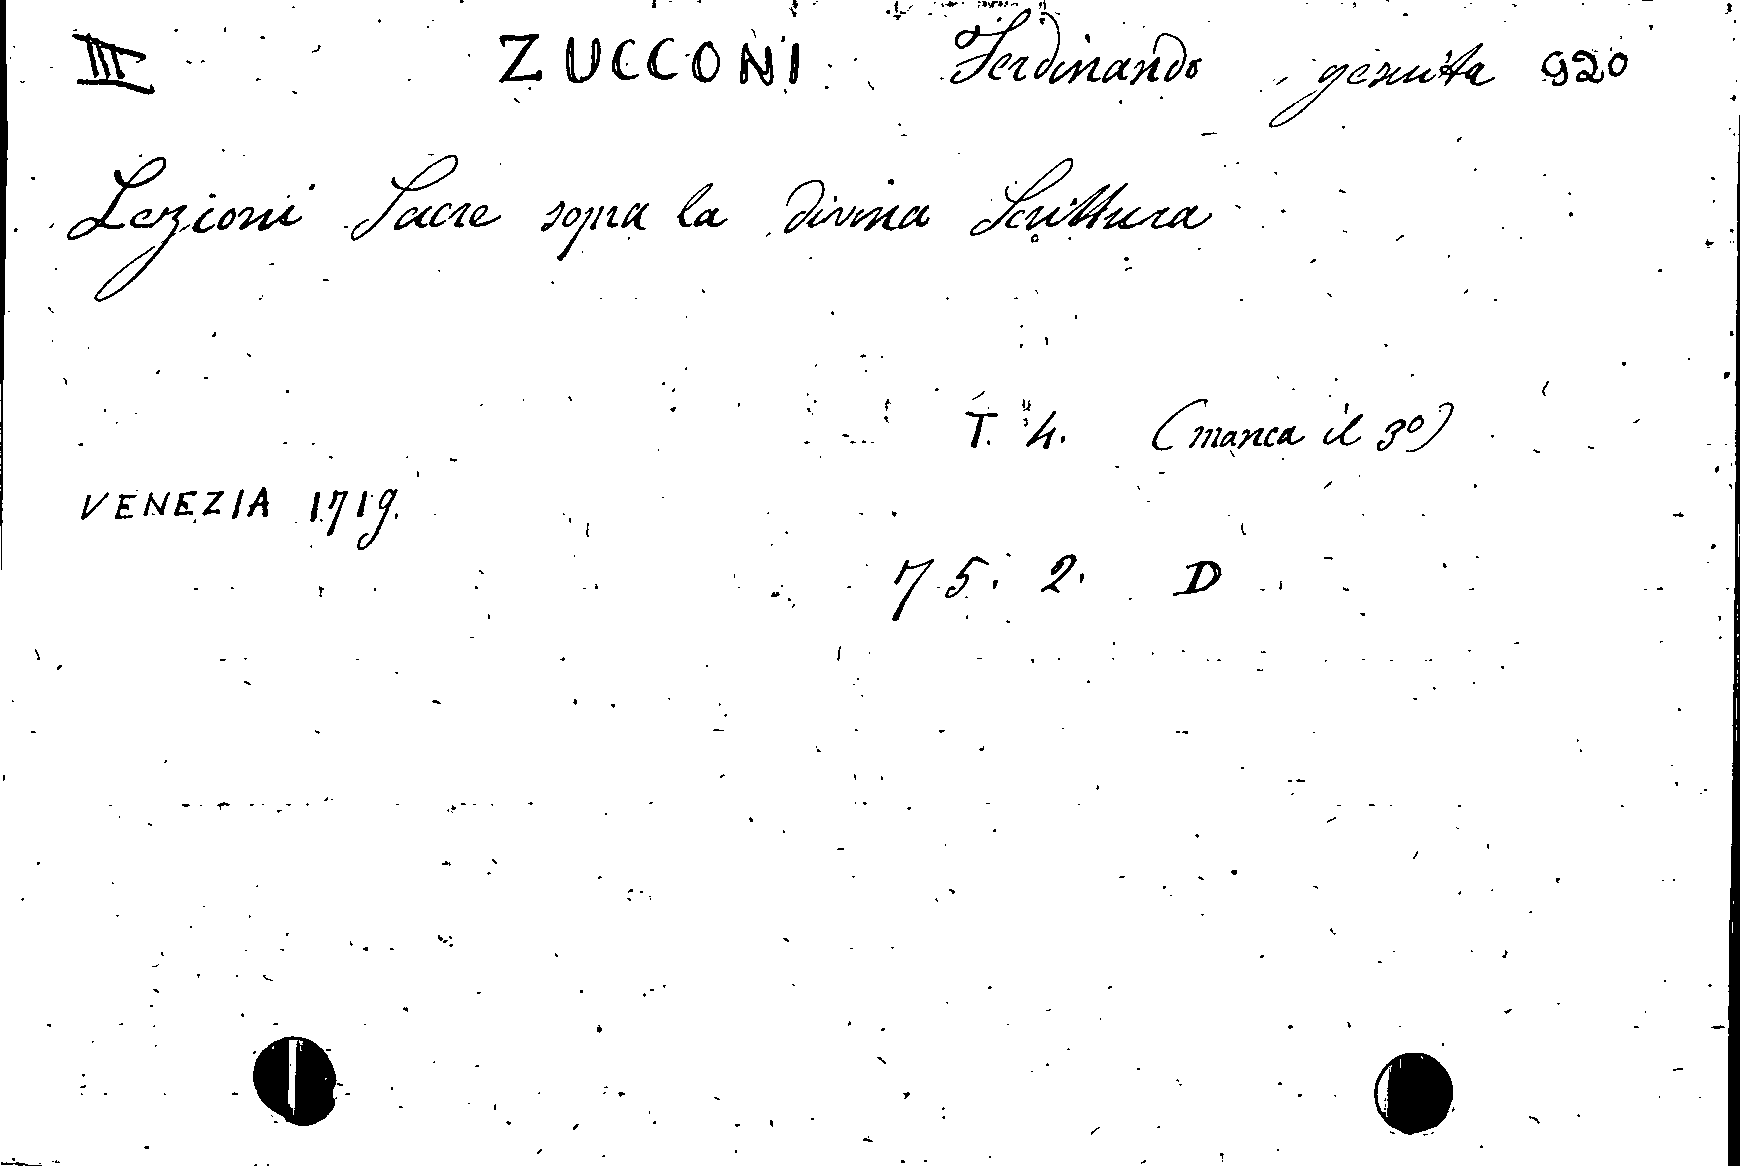 III ZUCCONI Ferdinando, gesuita 920
Lezioni Sacre sopra la divina Scrittura
T. 4. (manca il 3º)
VENEZIA 1719.
75. 2. D